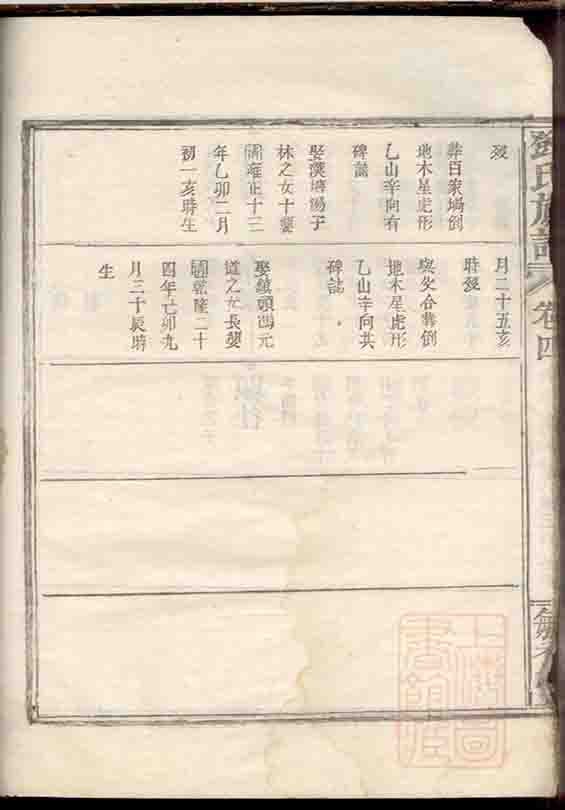 鄧氏族譜
卷四
歿
葬百家塢倒
地木星虎形
乙山辛向有
碑誌
娶漢塘湯子
林之女十嬰
雍正十三
年乙卯二月
初一亥時生
月二十五亥
時歿
與父合葬倒
地木星虎形
乙山辛向共
碑誌
娶鎮頭馮元
道之女長嬰
乾隆二十
四年己卯九
月三十辰時
生
上海圖
書館藏